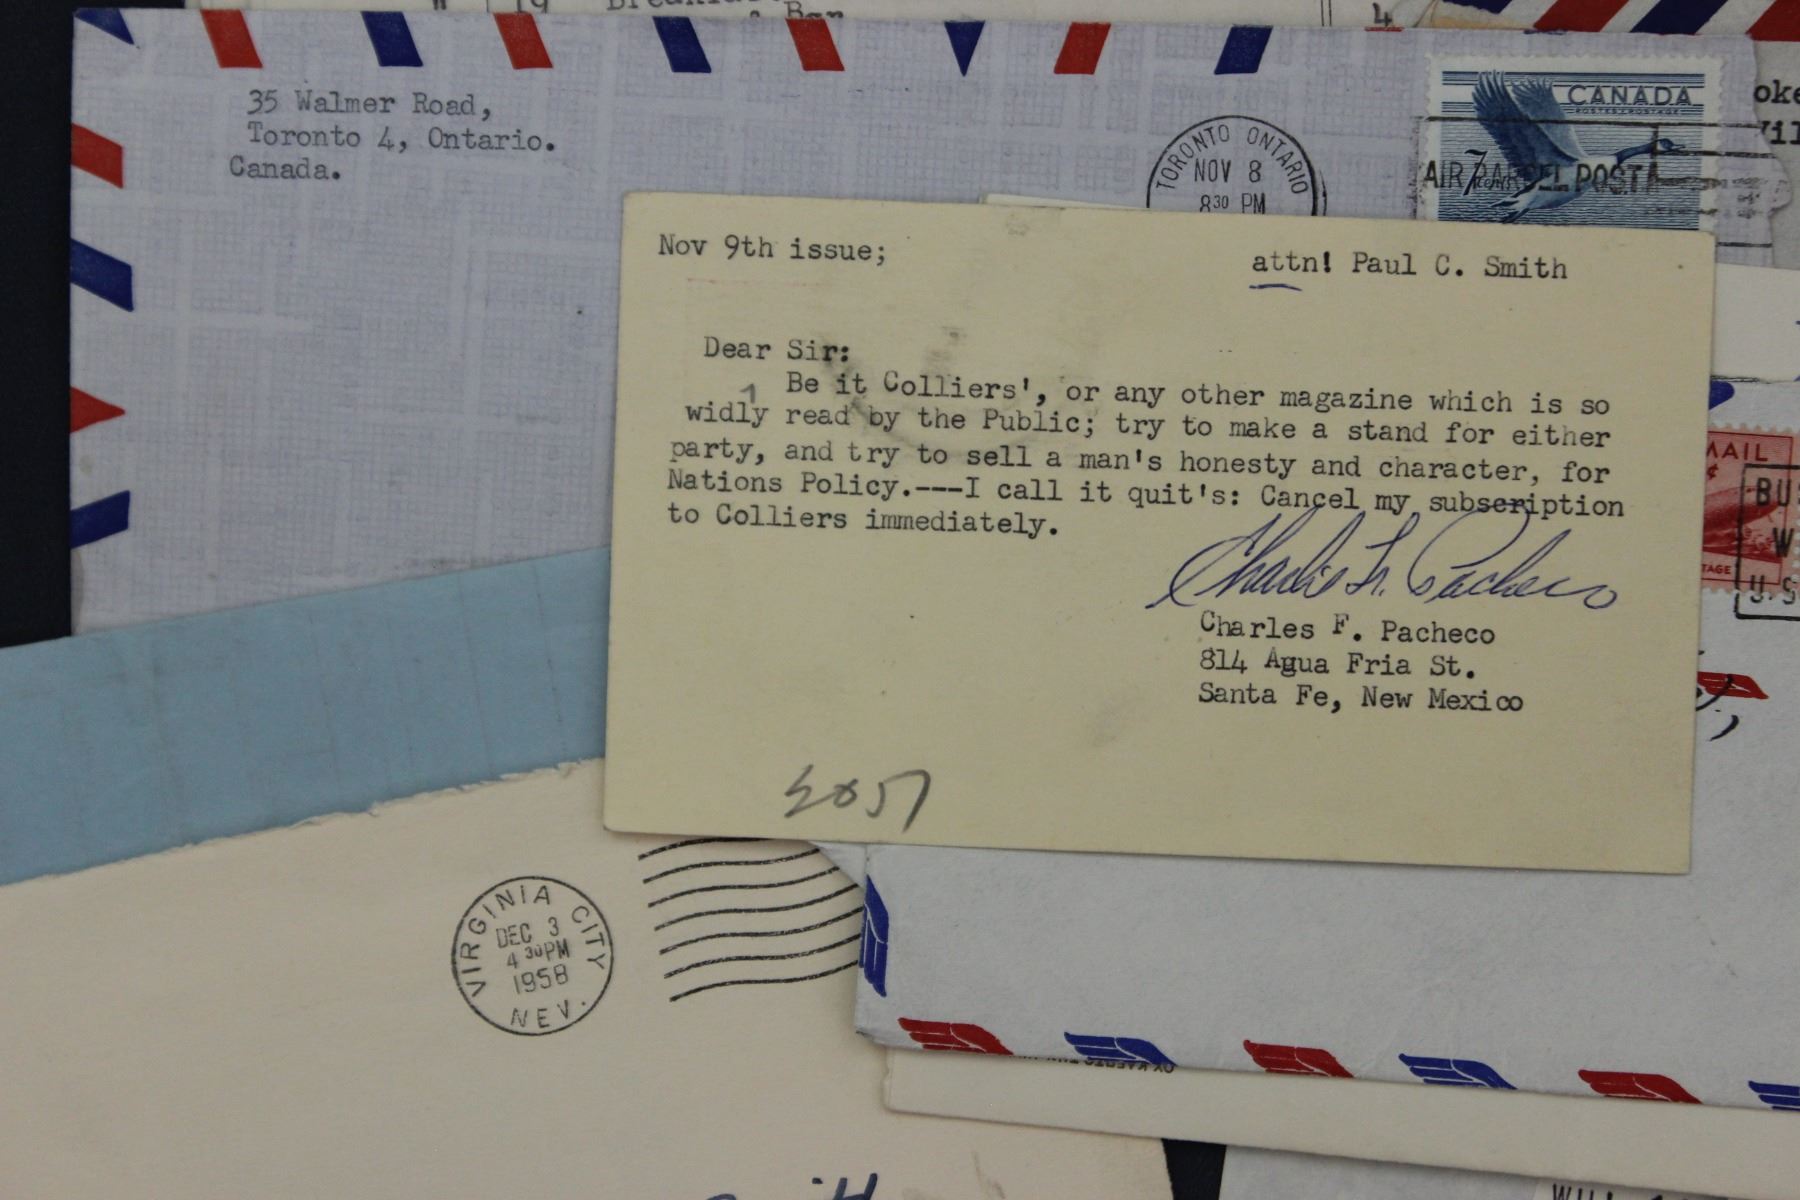 19
4
35 Walmer Road,
Toronto 4, Ontario.
Canada.
TORONTO ONTARIO
NOV 8
8 30 PM
CANADA
POSTES POSTAGE
7 cents
AIR PARCEL POST
Nov 9th issue;
attn! Paul C. Smith
Dear Sir:
Be it Colliers', or any other magazine which is so
widly read by the Public; try to make a stand for either
party, and try to sell a man's honesty and character, for
Nations Policy.---I call it quit's: Cancel my subscription
to Colliers immediately.
Charlie Fr. Pacheco
Charles F. Pacheco
814 Agua Fria St.
Santa Fe, New Mexico
MAIL
BUS
W
U.S
VIRGINIA CITY
DEC 3
4 30 PM
1958
NEV.